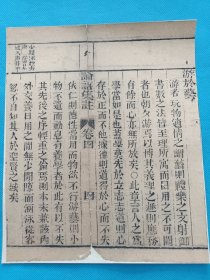 游於藝
游者玩物適情之謂藝則禮樂之文射御
書數之法皆至理所寓而日用之不可闕
者也朝夕游焉以博其義理之趣則應務
有餘而心亦無所放矣○此章言人之爲
學當如是也蓋學莫先於立志志道則心
論語集註 卷四 四
存於正而不他據德則道得於心而不失
依仁則德性常用而物欲不行游藝則小
物不遺而動息有養學者於此有以不失
其先後之序輕重之倫焉則本末兼該內
外交養日用之間無少間隙而涵泳從容
忽不自知其入於聖賢之域矣